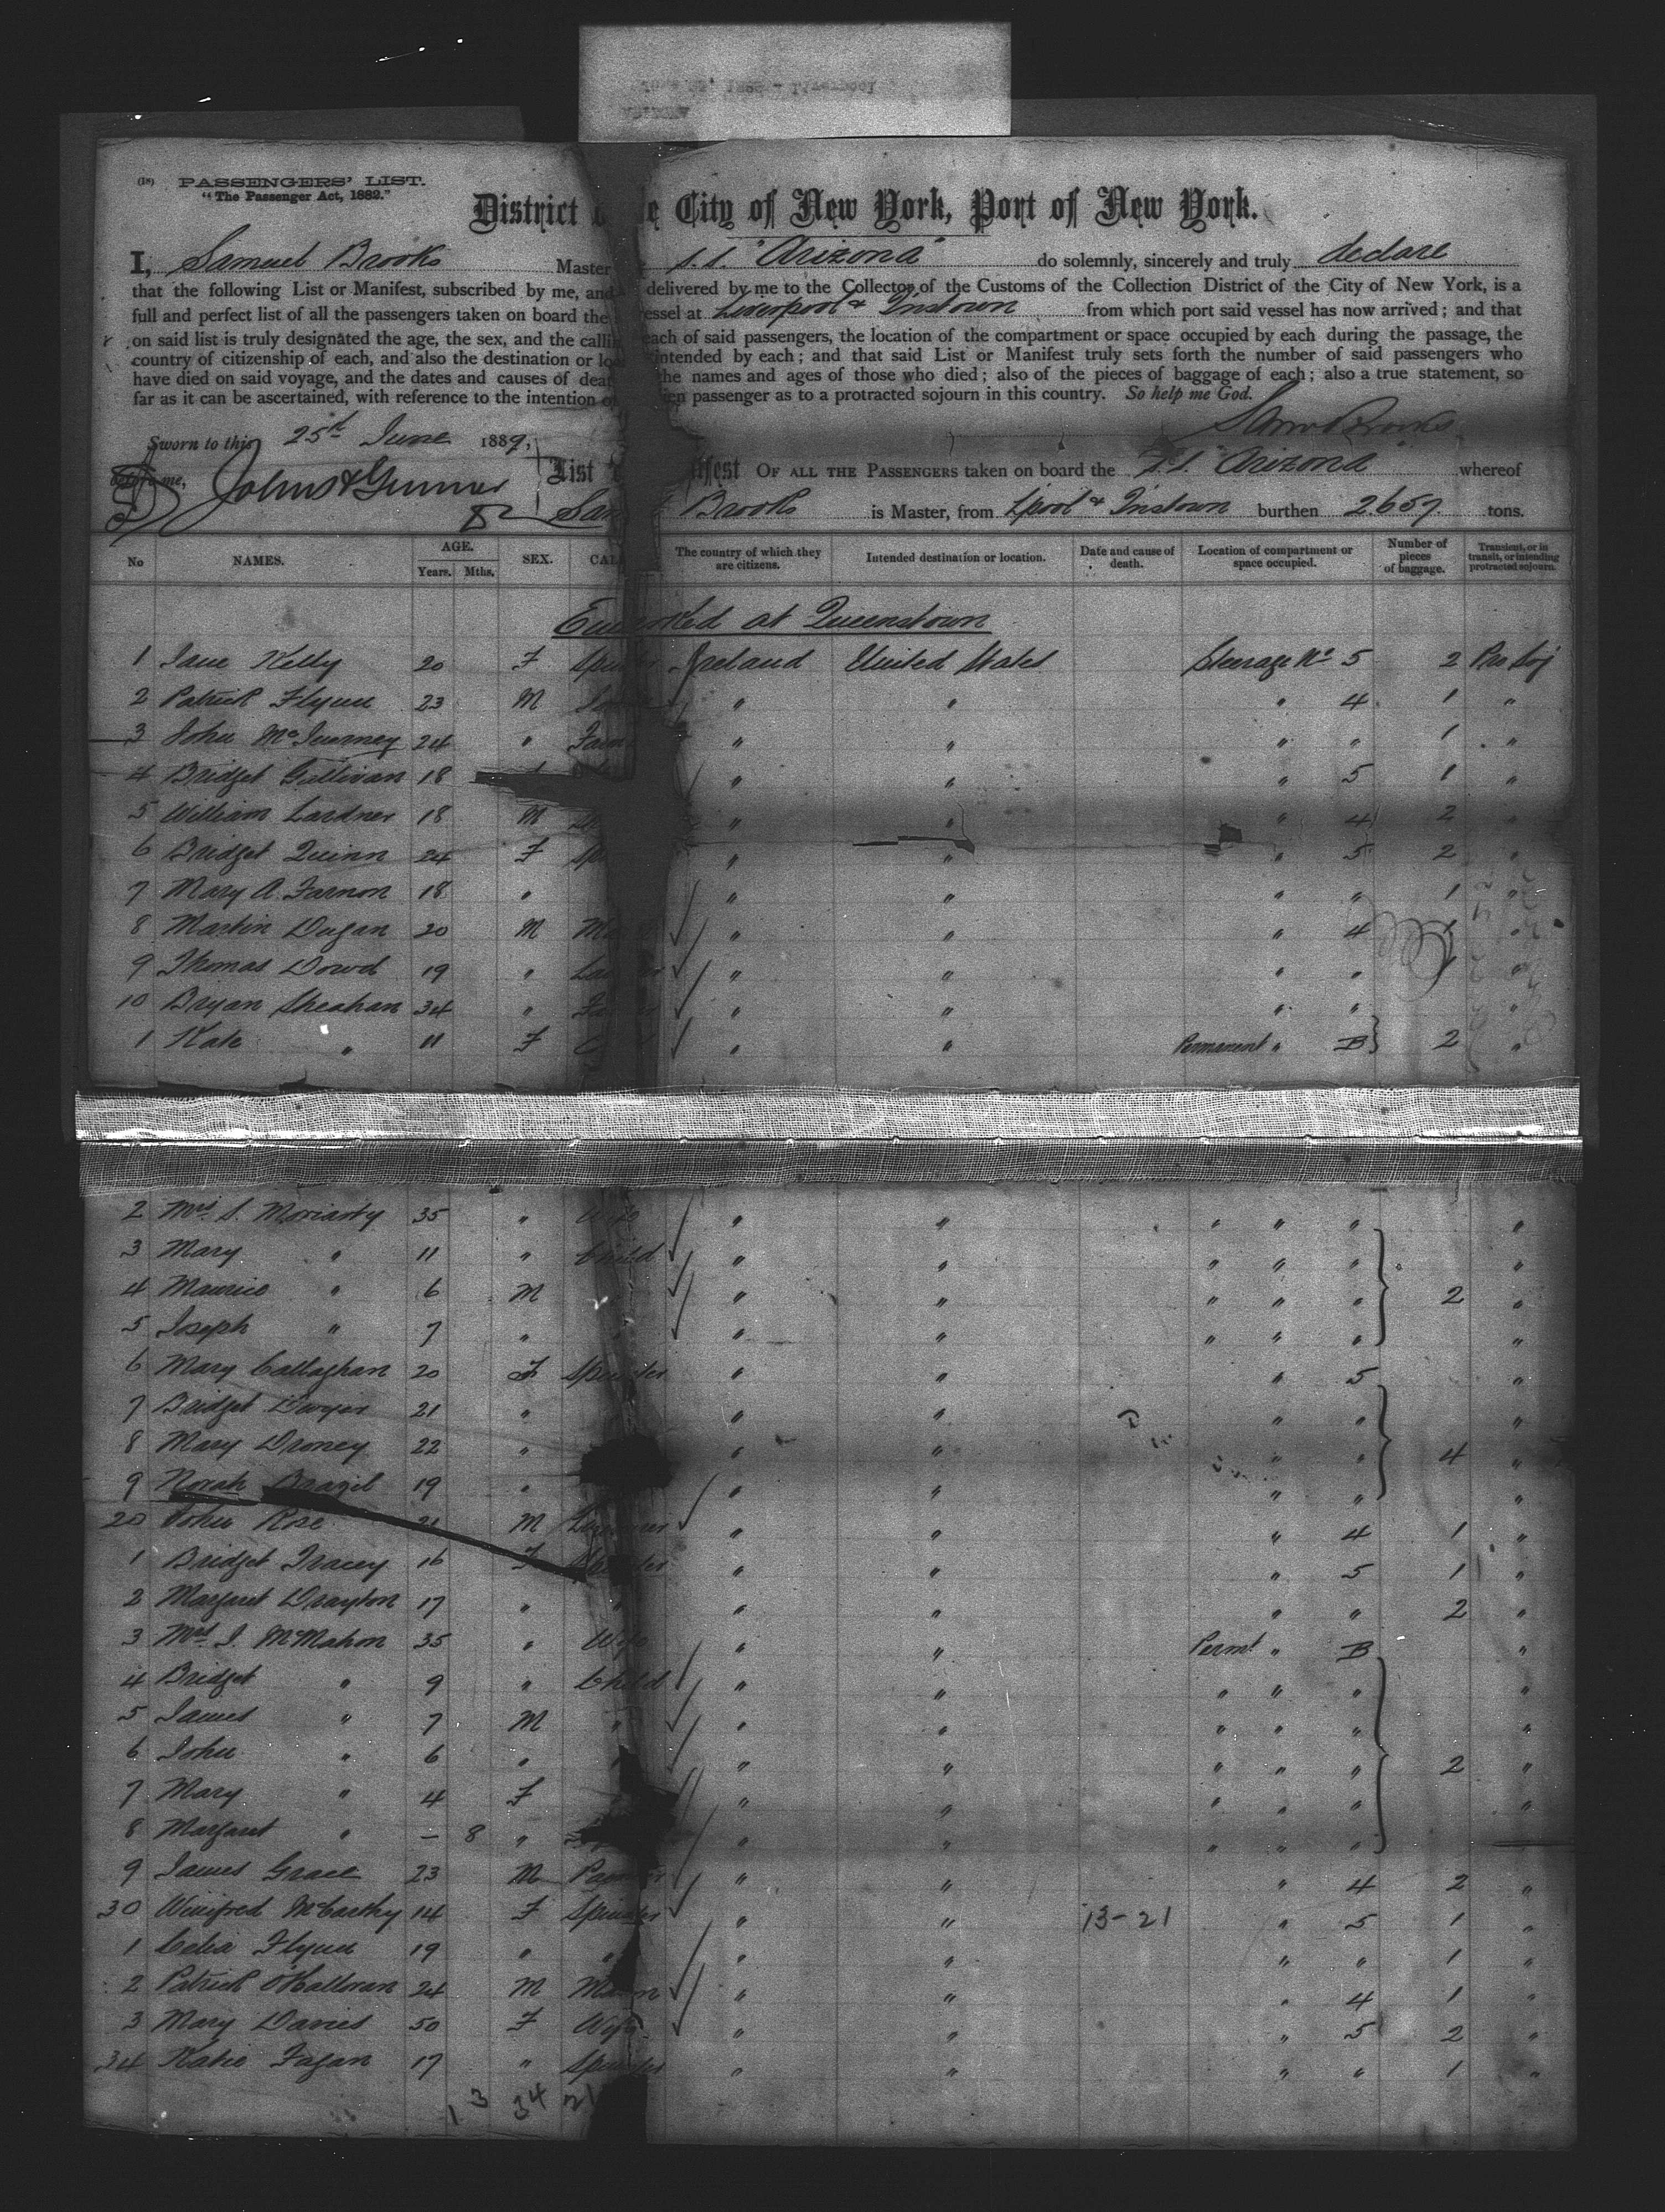 (18) PASSENGERS' LIST.
"The Passenger Act, 1882."
District City of New York, Port of New York.
I, Samuel Brooks Master s.s. "Arizona" do solemnly, sincerely and truly declare
that the following List or Manifest, subscribed by me, and delivered by me to the Collector of the Customs of the Collection District of the City of New York, is a
full and perfect list of all the passengers taken on board the at Liverpool & Qnstown from which port said vessel has now arrived; and that
on said list is truly designated the age, the sex, and the each of said passengers, the location of the compartment or space occupied by each during the passage, the
country of citizenship of each, and also the destination or intended by each; and that said List or Manifest truly sets forth the number of said passengers who
have died on said voyage, and the dates and causes of the names and ages of those who died; also of the pieces of baggage of each; also a true statement, so
far as it can be ascertained, with reference to the intention passenger as to a protracted sojourn in this country. So help me God.
Sworn to this 25th June 1889,
Saml Brooks
before me,
List OF ALL THE PASSENGERS taken on board the s.s. Arizona whereof
Brooks is Master, from Lpool & Qnstown burthen 2657 tons.
No NAMES. AGE. Years. Mths. SEX. The country of which they are citizens. Intended destination or location. Date and cause of death. Location of compartment or space occupied. Number of pieces of baggage. Transient, or in transit, or intending protracted sojourn.
at Queenstown
1 Jane Kelly 20 F Ireland United States Steerage No 5 2 Pro Soj
2 Patrick Flynn 23 M " " " 4 1 "
3 John McInerney 24 " " " " " 1 "
4 Bridget Sullivan 18 " " " 5 1 "
5 William Lardner 18 M " " " 4 2 "
6 Bridget Quinn 24 F " " " 5 2 "
7 Mary A. Farnon 18 " " " " " 1 "
8 Martin Dugan 20 M " " " 4 1 "
9 Thomas Dowd 19 " " " " " 1 "
10 Bryan Sheahan 34 " " " " " "
1 Kate " 11 F " " Permanent " B 2 "
2 Mrs. S. Moriarty 35 " Wife " " " " " "
3 Mary " 11 " Child " " " " " "
4 Maurice " 6 M " " " " " 2 "
5 Joseph " 7 " " " " " " "
6 Mary Callaghan 20 F Spinster " " " 5 "
7 Bridget Dwyer 21 " " " " " "
8 Mary Droney 22 " " " " " 4 "
9 Norah Brazil 19 " " " " " "
20 John Rose 21 M " " " 4 1 "
1 Bridget Tracey 16 F Spinster " " " 5 1 "
2 Margaret Drayton 17 " " " " " " 2 "
3 Mrs. J. McMahon 35 " Wife " " Permt " B "
4 Bridget " 9 " Child " " " " " "
5 James " 7 M " " " " " " "
6 John " 6 " " " " " " 2 "
7 Mary " 4 F " " " " " "
8 Margaret " – 8 " " " " " " "
9 James Grace 23 M " " " 4 2 "
30 Winifred McCarthy 14 F Spinster " " 13-21 " 5 1 "
1 Celia Flynn 19 " " " " " " 1 "
2 Patrick O'Halloran 24 M " " " 4 1 "
3 Mary Davies 50 F Wife " " " 5 2 "
34 Katie Fagan 17 " Spinster " " " " 1 "
1 3 34 21